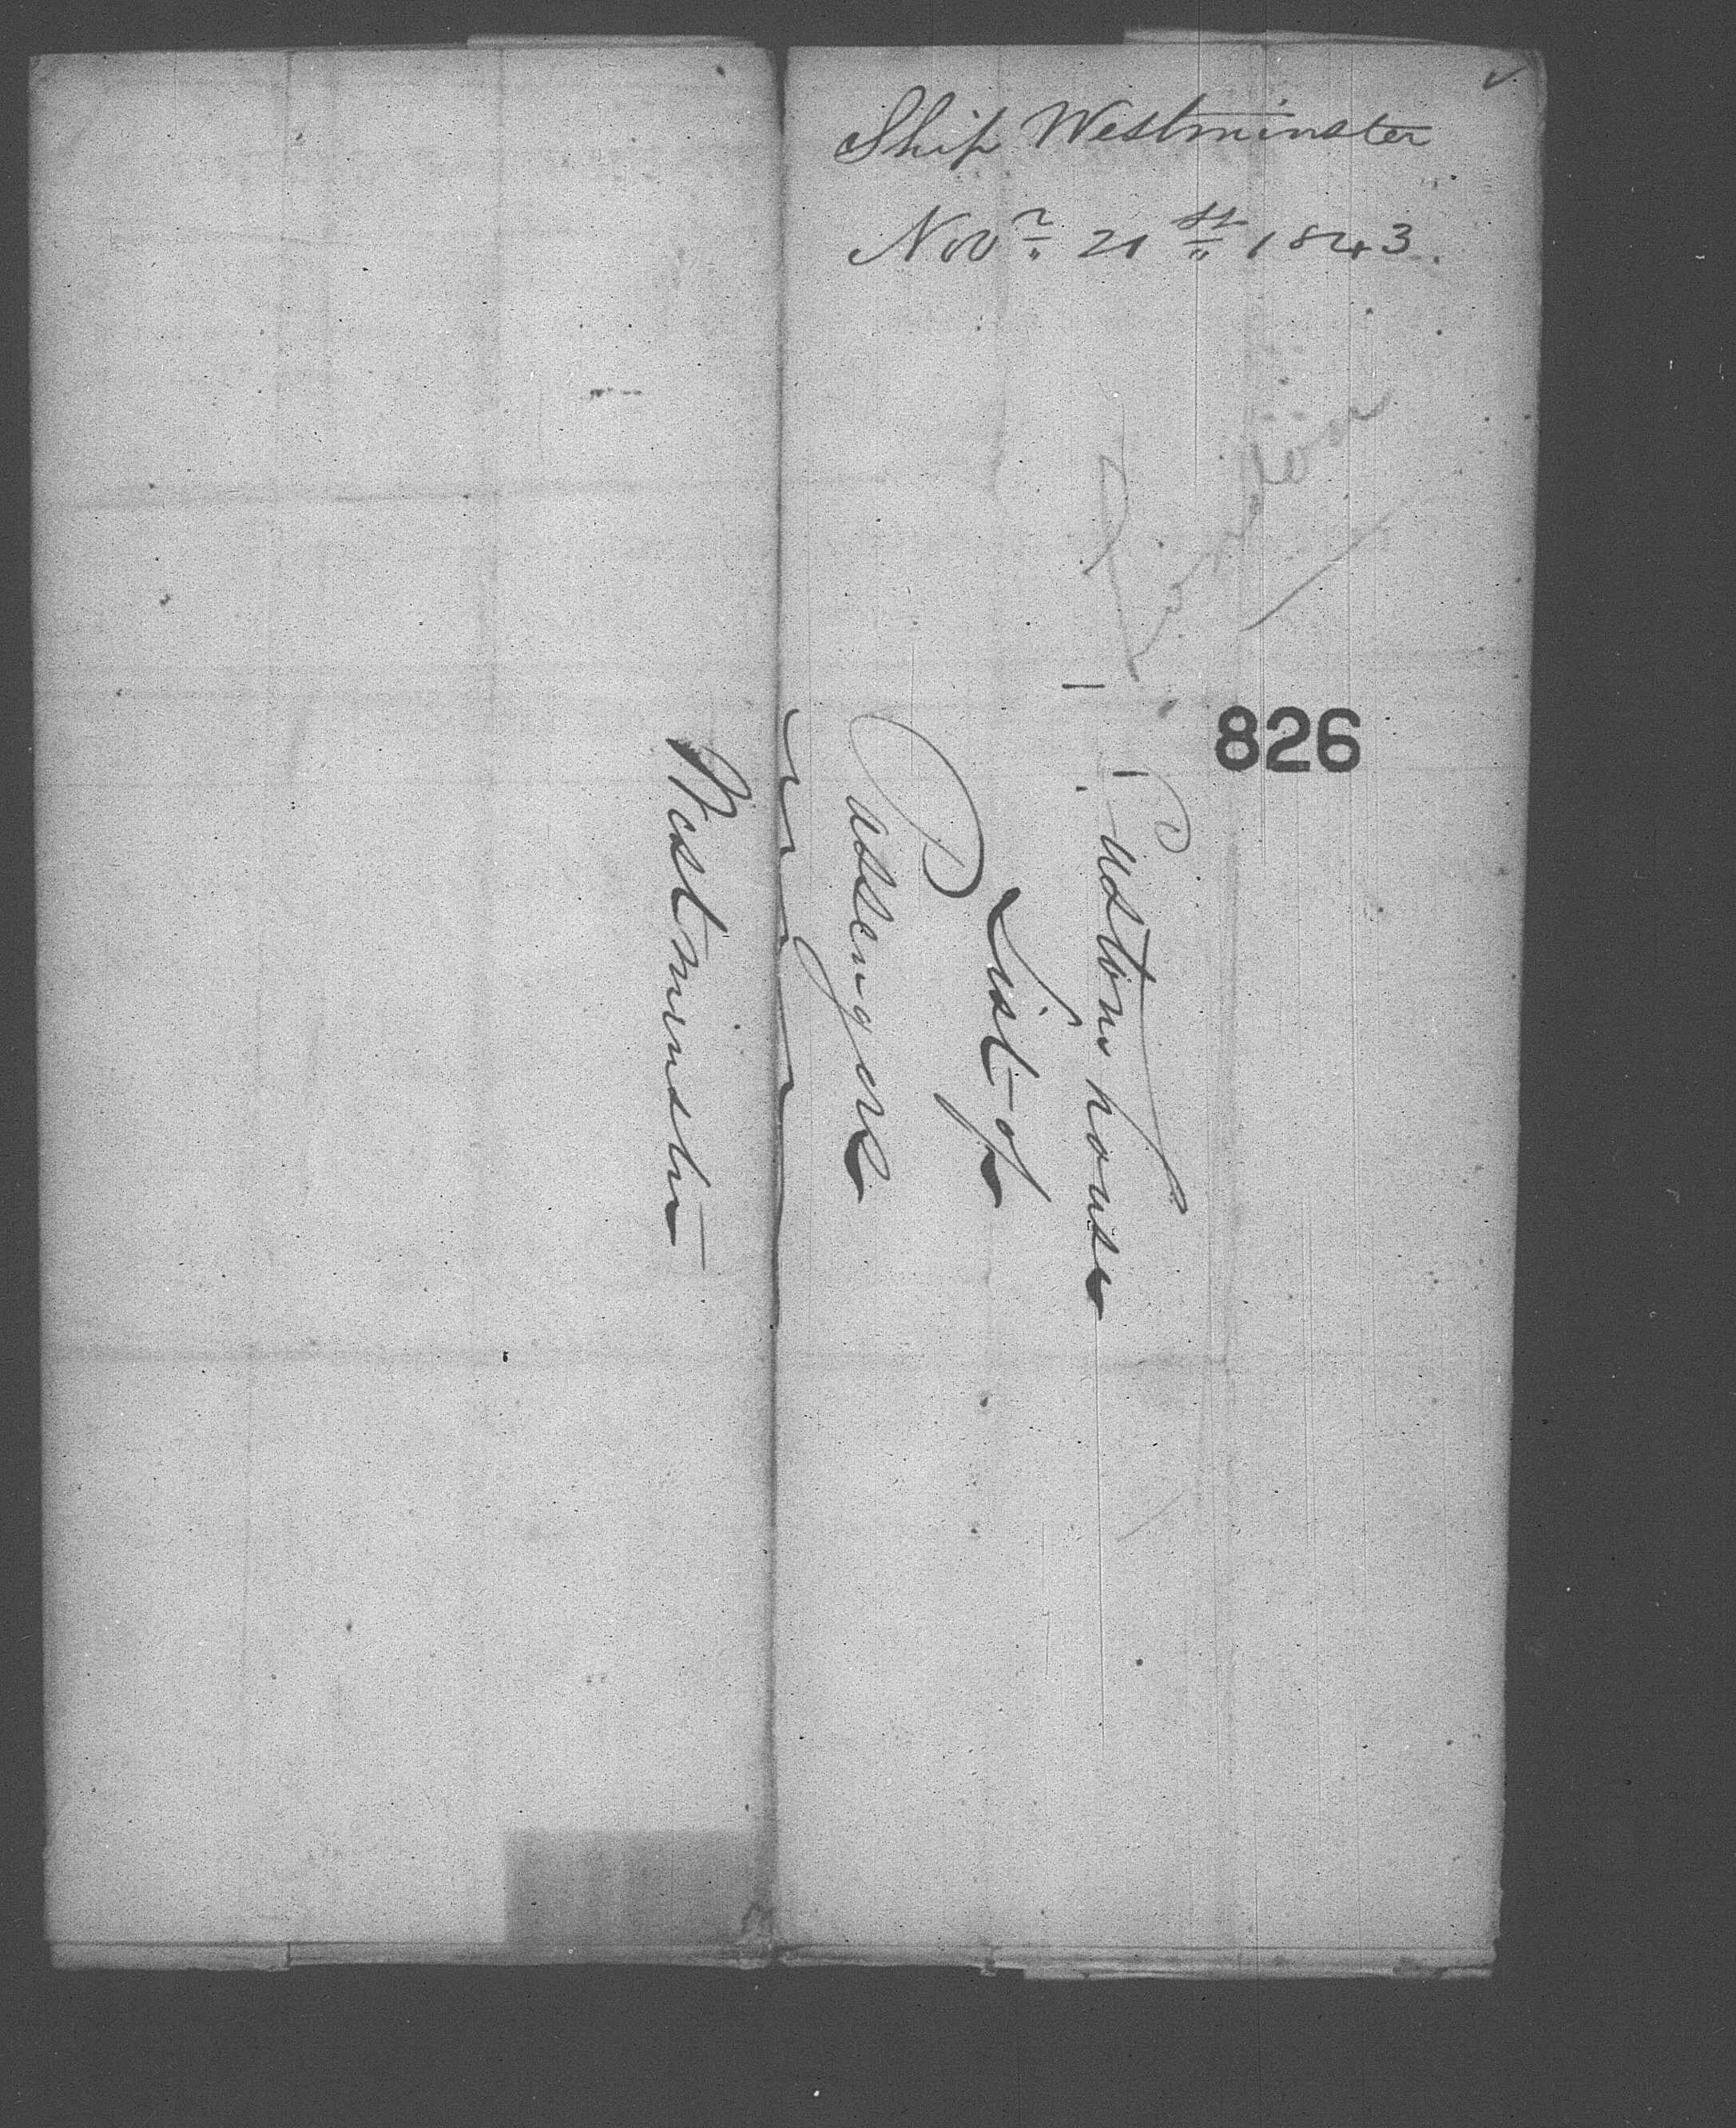 Ship Westminster
Novr 21st 1843.
London
826
Custom house
List of
Passengers
Westminster